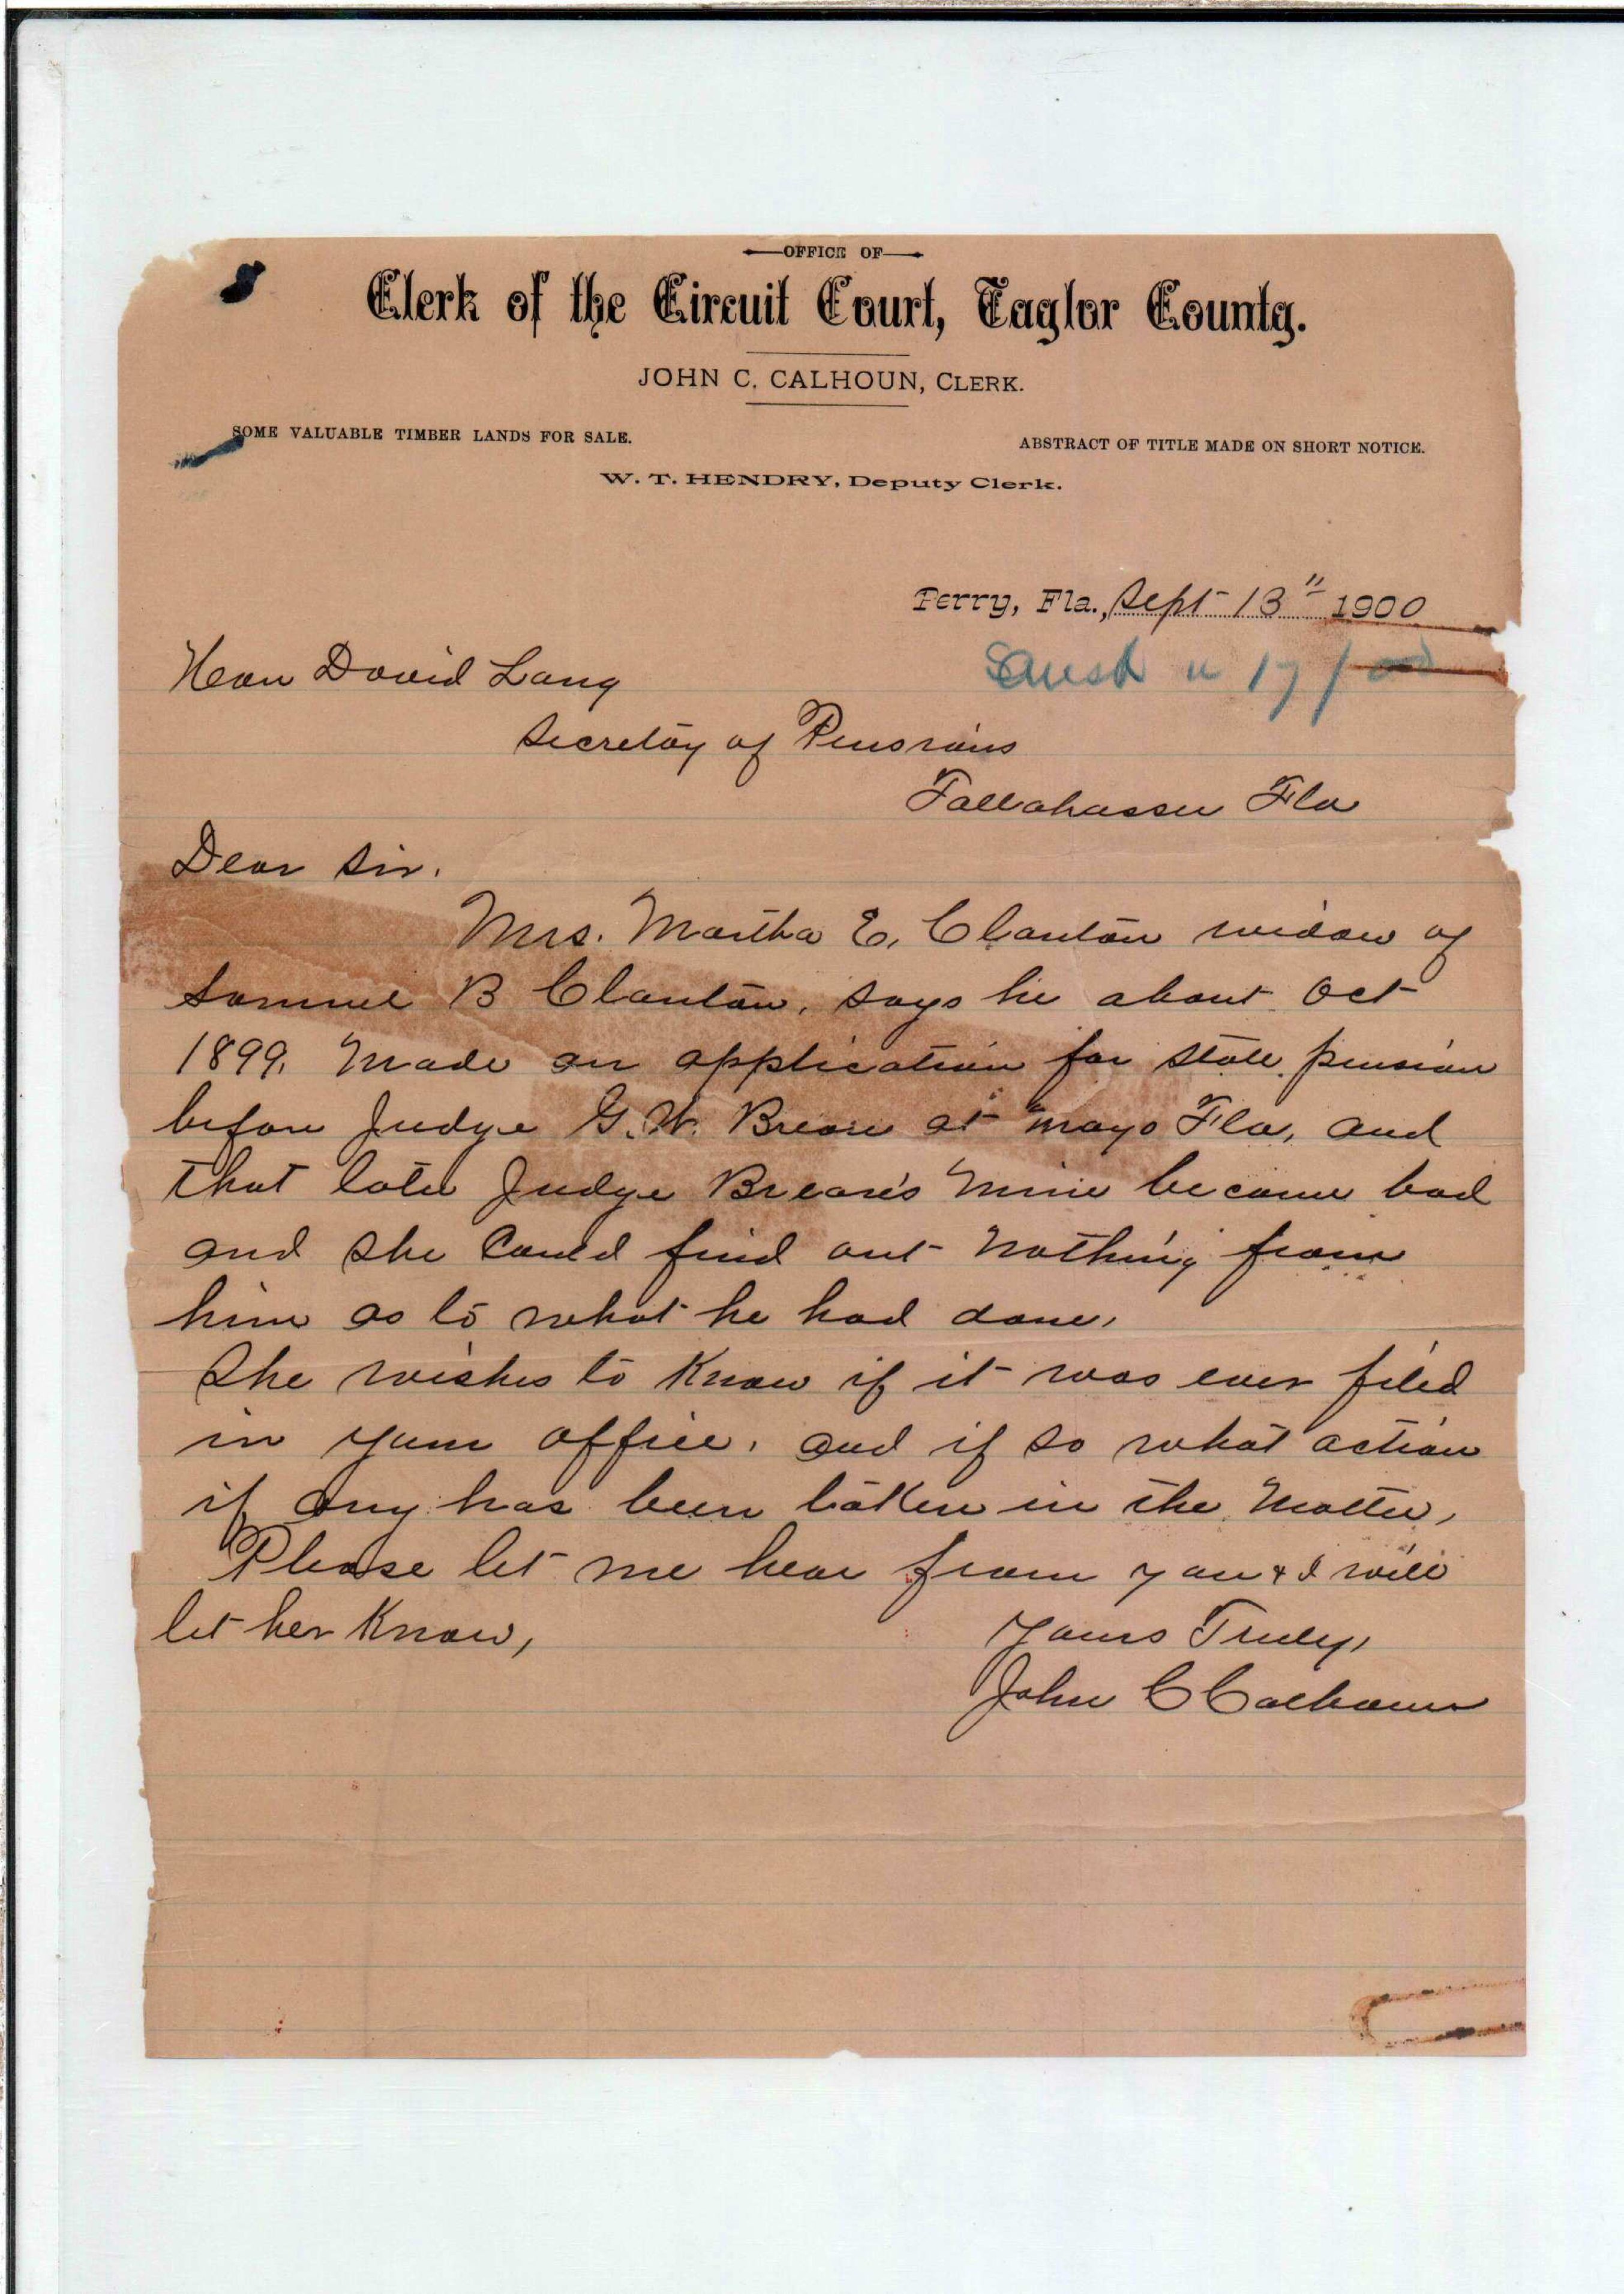 OFFICE OF
Clerk of the Circuit Court, Taylor County.
JOHN C. CALHOUN, CLERK.
SOME VALUABLE TIMBER LANDS FOR SALE.
ABSTRACT OF TITLE MADE ON SHORT NOTICE.
W. T. HENDRY, Deputy Clerk.
Perry, Fla., Sept 13" 1900
17/00
Hon David Lang
Secretary of Pensions
Tallahassee Fla
Dear Sir.
Mrs. Martha E. Clanton widow of
Samuel B Clanton, says he about Oct
1899, Made an application for state pension
before Judge G. W. Breare at Mayo Fla, and
that later Judge Breare's mind became bad
and she Could find out Nothing from
him as to what he had done,
She wishes to Know if it was ever filed
in your office, and if so what action
if any has been taken in the Matter,
Please let me hear from you & I will
let her Know,
Yours Truly,
John C Calhoun